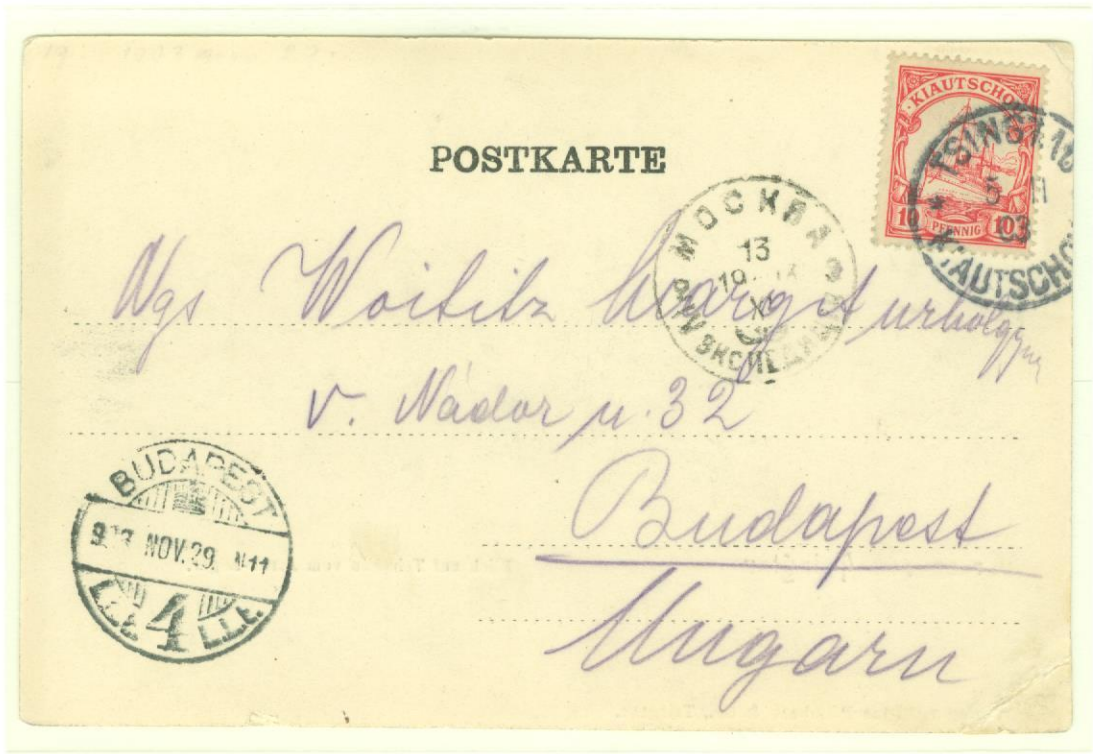 POSTKARTE
KIAUTSCHOU
10 PFENNIG 10
TSINGTAU
5 11
03
KIAUTSCHOU
МОСКВА
13
19
XI
Ngs Woititz Margit urhölgynek
V. Nádor u. 32
Budapest
Ungarn
BUDAPEST
903 NOV. 29. N11
4